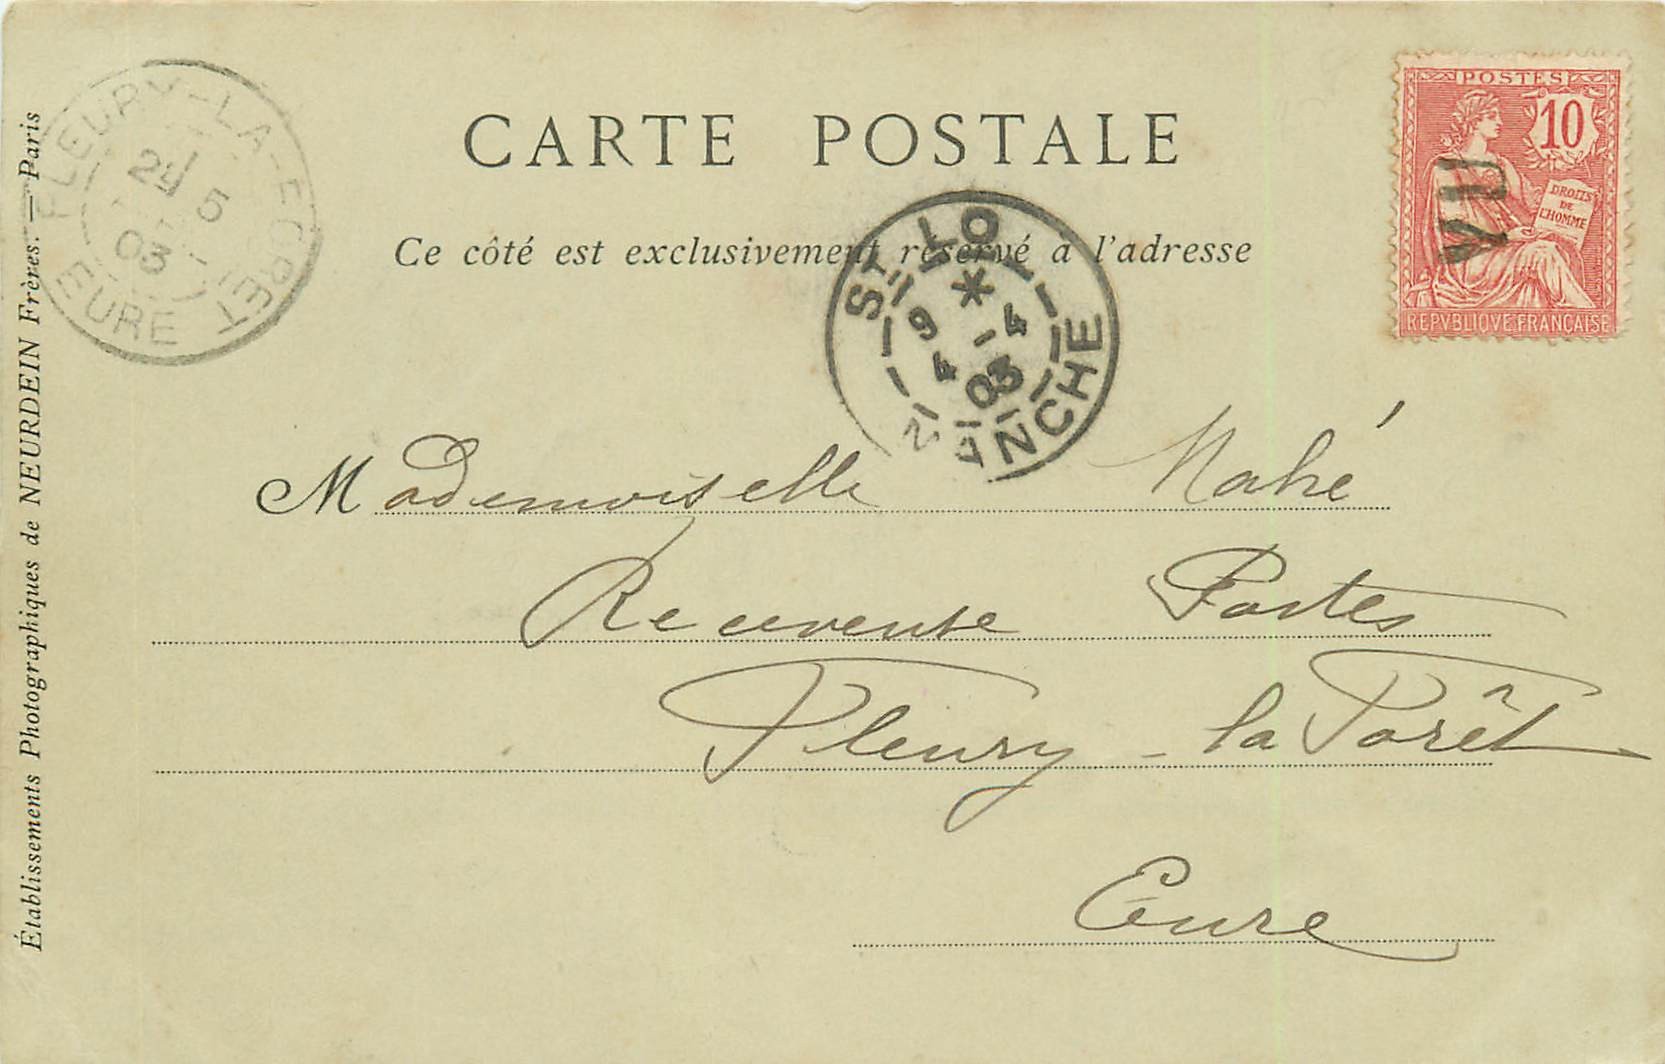 CARTE POSTALE
Ce côté est exclusivement réservé a l'adresse
POSTES
10
DROITS
DE
L'HOMME
REPVBLIQVE FRANÇAISE
VU
FLEURY-LA-FORET
5
03
EURE
ST LO
9 4
4
03
MANCHE
Mademoiselle Mahé
Receveuse Postes
Fleury-la Forêt
Eure
Établissements Photographiques de NEURDEIN Frères. — Paris